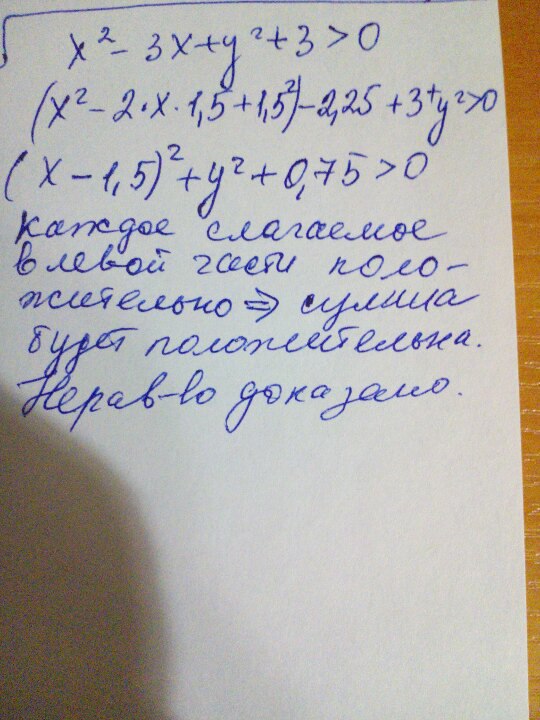 x² - 3x + y² + 3 > 0
(x² - 2·x·1,5 + 1,5²) - 2,25 + 3 + y² > 0
(x - 1,5)² + y² + 0,75 > 0
каждое слагаемое
в левой части поло-
жительно ⇒ сумма
будет положительна.
Нерав-во доказано.